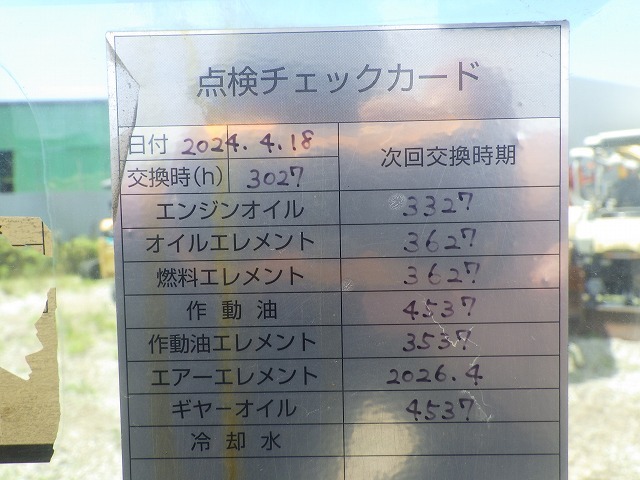 点検チェックカード
日付 2024.4.18 次回交換時期
交換時(h) 3027
エンジンオイル 3327
オイルエレメント 3627
燃料エレメント 3627
作動油 4537
作動油エレメント 3537
エアーエレメント 2026.4
ギヤーオイル 4537
冷却水